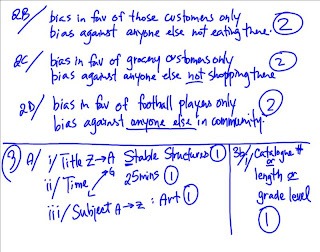 2B/ bias in fav of those customers only
bias against anyone else not eating there. 2
2C/ bias in fav of grocery customers only
bias against anyone else not shopping there 2
2D/ bias in fav of football players only
bias against anyone else in community. 2
3 A/ i/ Title Z→A Stable Structures 1
ii/ Time → G 25mins 1
iii/ Subject A→Z : Art 1
3b/ Catalogue #
or
length or
grade level
1